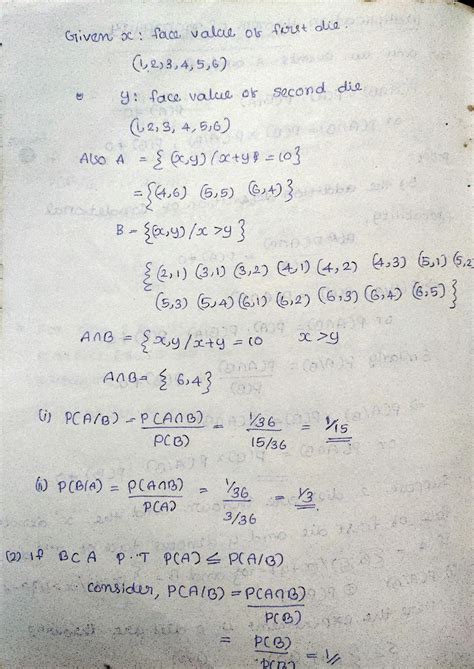 Given x: face value of first die.
(1,2,3,4,5,6)
y: face value of second die
(1,2,3,4,5,6)
Also A = {(x,y)/x+y = 10}
= {(4,6) (5,5) (6,4)}
B = {(x,y)/x>y}
{(2,1) (3,1) (3,2) (4,1) (4,2) (4,3) (5,1) (5,2
(5,3) (5,4) (6,1) (6,2) (6,3) (6,4) (6,5)}
A∩B = {x,y/x+y=10 x>y
A∩B = {6,4}
(i) P(A/B) = P(A∩B)/P(B) = 1/36 / 15/36 = 1/15
(ii) P(B/A) = P(A∩B)/P(A) = 1/36 / 3/36 = 1/3
(2) If B⊂A P.T P(A) ≤ P(A/B)
consider, P(A/B) = P(A∩B)/P(B)
= P(B)/P(B) = 1